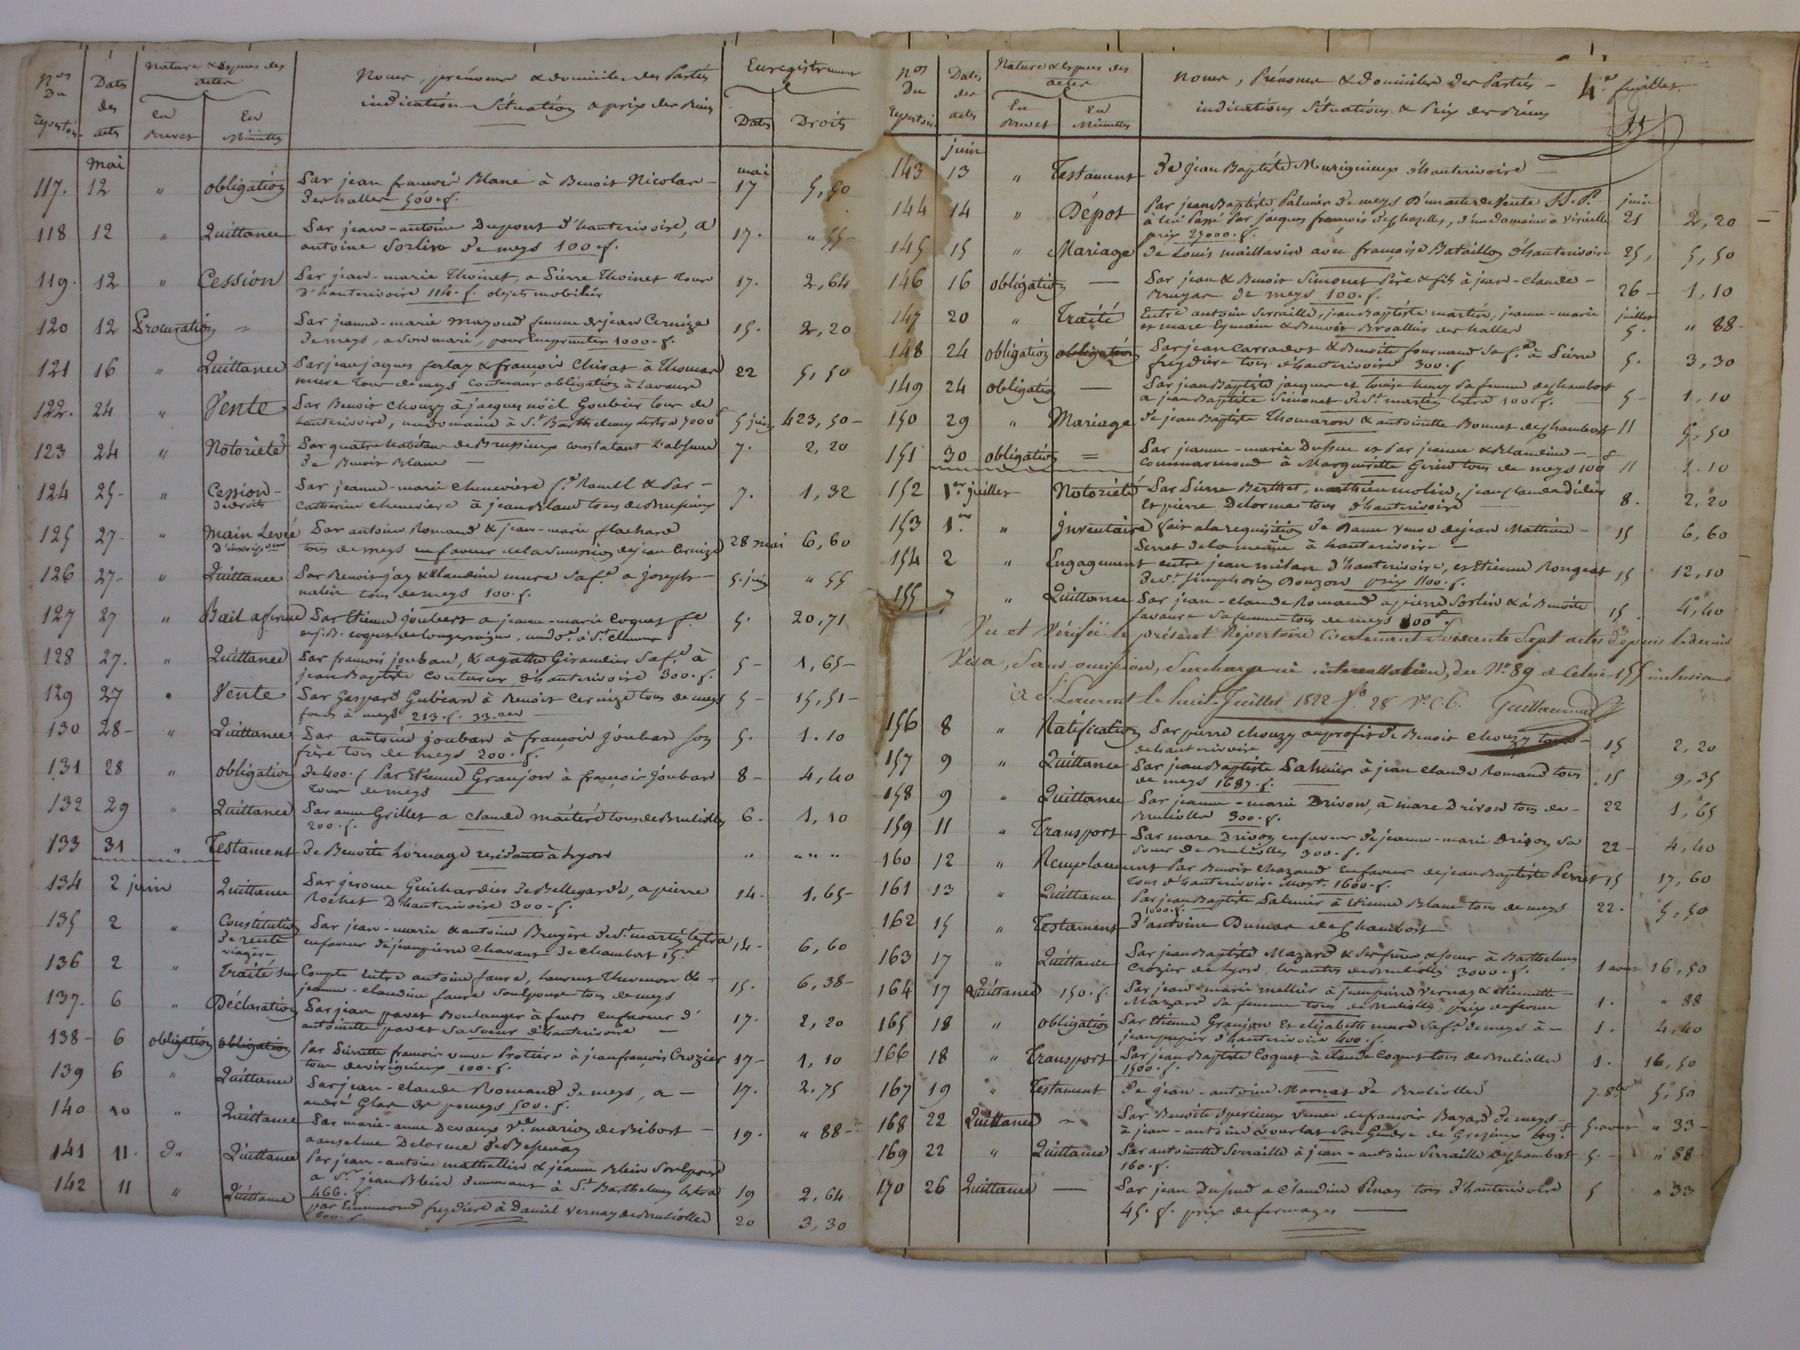 Nos Du Repertoire
Dates des actes
Nature & Espèces des actes
En Brevet
En Minuttes
Noms, prénoms & domiciles des Parties
indications Situations & prix des Biens
Enregistrement
Dates
Droits
mai mai
117. 12 " obligation Par jean françois Blanc à Benoit Nicolas 17 5,50
500.f.
118 12 " Quittance Par jean-antoine Dupont d'hauterivoire, a 17. " 55
antoine Sorlin de meys 100.f.
119. 12 " Cession Par jean-marie Thoinet, a Pierre Thoinet tous 17. 2,64
d'hauterivoire 114.f. objets mobiliers
120 12 Procuration = Par jeanne-marie mazoud femme de jean Cernize 15. 2,20
de meys, a son mari, pour Emprunter 1000.f.
121 16 " Quittance Par jean jaques ferlay & françois Chirat à Thomas 22 5,50
mure tous de meys contenant obligation à
122. 24 " Vente Par Benoit Chouzy à jacques noël Goubier tous de 5 juin 423,50
hauterivoire, un domaine à St Barthelemy Lestra 7000f
123 24 " Notoriété Par quatre habitans de Brussieux constatant l'absence 7. 2,20
de Benoit Blanc
124 25 Cession de droits Par jeanne-marie chenevière fe & Par 7. 1,32
Catherine chenevière à jean Blanc tous de Brussieux
125 27 " Main Levée Par antoine Romand & jean-marie flachard 28 mai 6,60
d'inscription tous de meys en faveur de la succession de jean Cernize
126 27 " Quittance Par Benoit jay & Claudine mure sa fe a joseph 5 juin " 55
tous de meys 100.f.
127 27 " Bail a ferme Par Etienne joubert a jeanne-marie Coquet fe 5. 20,71
128 27. " Quittance Par françois jouban, & agathe Giraudier sa fe à 5 1,65
jean Baptiste Couturier, d'hauterivoire 300.f.
129 27 " Vente Par Gaspard Gubian à Benoit Cernize tous de meys 5 15,51
fonds à meys 213.f. 33.cen
130 28 " Quittance Par antoine jouban à françois jouban son 5. 1.10
frère tous de meys 200.f.
131 28 " obligation de 400.f. Par Etienne Granjon à françois jouban 8 4,40
tous de meys
132 29 " Quittance Par anne Grillet a claude mâitré tous de Brulioles 6. 1,10
200.f.
133 31 " Testament de Benoite Lornage residante à Lyon " " " "
134 2 juin Quittance Par jerome Guichardier de Bellegarde, a pierre 14. 1,65
Rochet D'hauterivoire 300.f.
135 2 " Constitution Par jean-marie & antoine Bruyère de St martin Lestra 14 6,60
de rente viagère en faveur de jean pierre Chavant de Chambost 15.f
136 2 " Traité sur Compte Entre antoine faure, Laurent Thevenon & 15. 6,38
jeanne-claudine faure son épouse tous de meys
137. 6 " Déclaration Par jean pavet Boulanger à feurs en faveur d' 17. 2,20
antoinette pavet sa soeur d'hauterivoire
138 6 obligation obligation Par Pierrette françois veuve Protière à jean françois Crozier 17 1,10
tous de virigneux 100.f.
139 6 " Quittance Par jean-claude Romand de meys, a 17. 2.75
andré Glas de pomeys 500.f.
140 10 " Quittance Par marie-anne Devaux Ve marion de Bibost 19. " 88
a anselme Delorme de Bessenay
141 11. d° Quittance Par jean-antoine mathellin & jeanne Blein son épouse 19 2,64
a Sr jean Blein demeurant à St Barthelemy Lestra
466.f.
142 11 " Quittance par Ennemond freydière à Daniel Vernay de Brulioles 20 3,30
600.f.
Nos Du Repertoire
Dates des actes
Nature & Espèces des actes
En Brevet
En Minuttes
Noms, Prénoms & Domiciles des Parties
indications Situations & Prix des Biens
4e feuillet.
juin
143 13 " Testament De jean Baptiste Murigneux d'hauterivoire
144 14 " Dépot Par jean Baptiste Palmier de meys D'un acte de Vente SS.P. juin 21 2,20
prix 27000.f.
145 15 " Mariage de Louis maillavin avec françoise Bataillon d'hauterivoire 25, 5,50
146 16 obligation Par jean & Benoit Simonet Père & fils à jean-claude 26 1,10
Bruyas de meys 100.f.
147 20 " Traité Entre antoine Serraille, jean Baptiste martin, jeanne-marie juillet 5. " 88
148 24 obligation obligation Par jean Carradot & Benoite fournand sa fe à Pierre 5. 3,30
freydière tous d'hauterivoire 300.f
149 24 obligation Par jean Baptiste jacquemet & Louise sa femme de Chambost 5 1.10
a jean Baptiste Simonet de St martin Lestra 100.f.
150 29 " Mariage de jean Baptiste Thomaron & antoinette Bonnet de Chambost 11 5,50
151 30 obligation = Par jeanne-marie Dufour et Par jeanne & Claudine 11 1.10
à Marguerite Girin tous de meys 100
152 1er juillet Notoriété Par Pierre Berthet, mathieu molin, jean claude Didier 8. 2,20
et pierre Delorme tous d'hauterivoire
153 1er " Inventaire fait a la requisition de Veuve de jean Mathieu 15 6,60
à hauterivoire
154 2 " Engagement entre jean milan d'hauterivoire, et Etienne Rongeat 15 12,10
de St simphorien Bouzon prix 1100.f.
155 7 " Quittance Par jean-claude Romand a pierre Sorlin & à Benoite 15 4,40
favaure sa femme tous de meys 800f
Vu et Vérifié le présent Répertoire Contenant soixante Sept actes depuis le dernier
Visa, Sans omission, Surcharge ni intercallation, du No 89 à celui 155 inclusivement
à St Laurent le huit Juillet 1822 fo 28 Vo C.6. Guillaumond
156 8 " Ratification Par pierre chouzy au profit de Benoit chouzy tous 15 2,20
de hauterivoire
157 9 " Quittance Par jean Baptiste Palmier à jean claude Romand tous 15 9,35
de meys 1687.f.
158 9 " Quittance Par jeanne-marie Drivon, à marc Drivon tous de 22 1,65
Brulioles 300.f.
159 11 " Transport Par marc Drivon en faveur de jeanne-marie Drivon sa 22 4,40
soeur de Brulioles 300.f.
160 12 " Remplacement Par Benoit Chazaud en faveur de jean Baptiste Perret 15 17,60
tous d'hauterivoire 1600.f.
161 13 " Quittance Par jean Baptiste Palmier à Etienne Blanc tous de meys 22. 5,50
1000.f.
162 15 " Testament d'antoine Dumas de Chambost
163 17 " Quittance Par jean Baptiste Mazard & ses frères & soeur à Barthelemy 1 aout 16,50
Crozier de Lyon, les autres de Brulioles 3000.f.
164 17 Quittance 150.f. Par jean-marie mellier à jean pierre Vernay & etiennette 1. " 88
Mazard sa femme tous de Brulioles, prix de ferme
165 18 " obligation Par Etienne Granjon et elizabeth mure sa fe de meys à 1. 4,40
d'hauterivoire 400.f.
166 18 " Transport Par jean Baptiste Coquet à claude Coquet tous de Brulioles 1. 16,50
1500.f.
167 19 " Testament de jean-antoine Mornas de Brulioles 7.8bre 5,50
168 22 Quittance Par Benoite veuve de françois Bazard de meys 5 aout " 33
à jean-antoine son Gendre de Grezieux 49.f
169 22 " Quittance Par antoinette Serraille à jean-antoine Serraille de Chambost 5 " 88
160.f.
170 26 Quittance Par jean Dufond a Claudine Pinay tous d'hauterivoire 5 " 33
45.f. prix de fermages